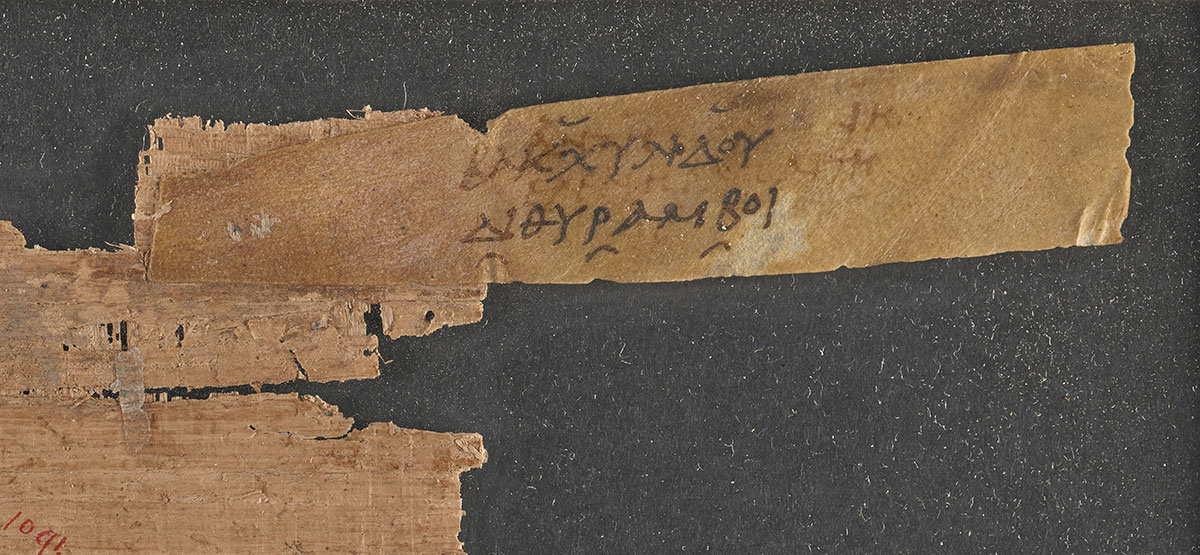 ΒΑΚΧΥΛΙΔΟΥ
ΔΙΘΥΡΑΜΒΟΙ
1091